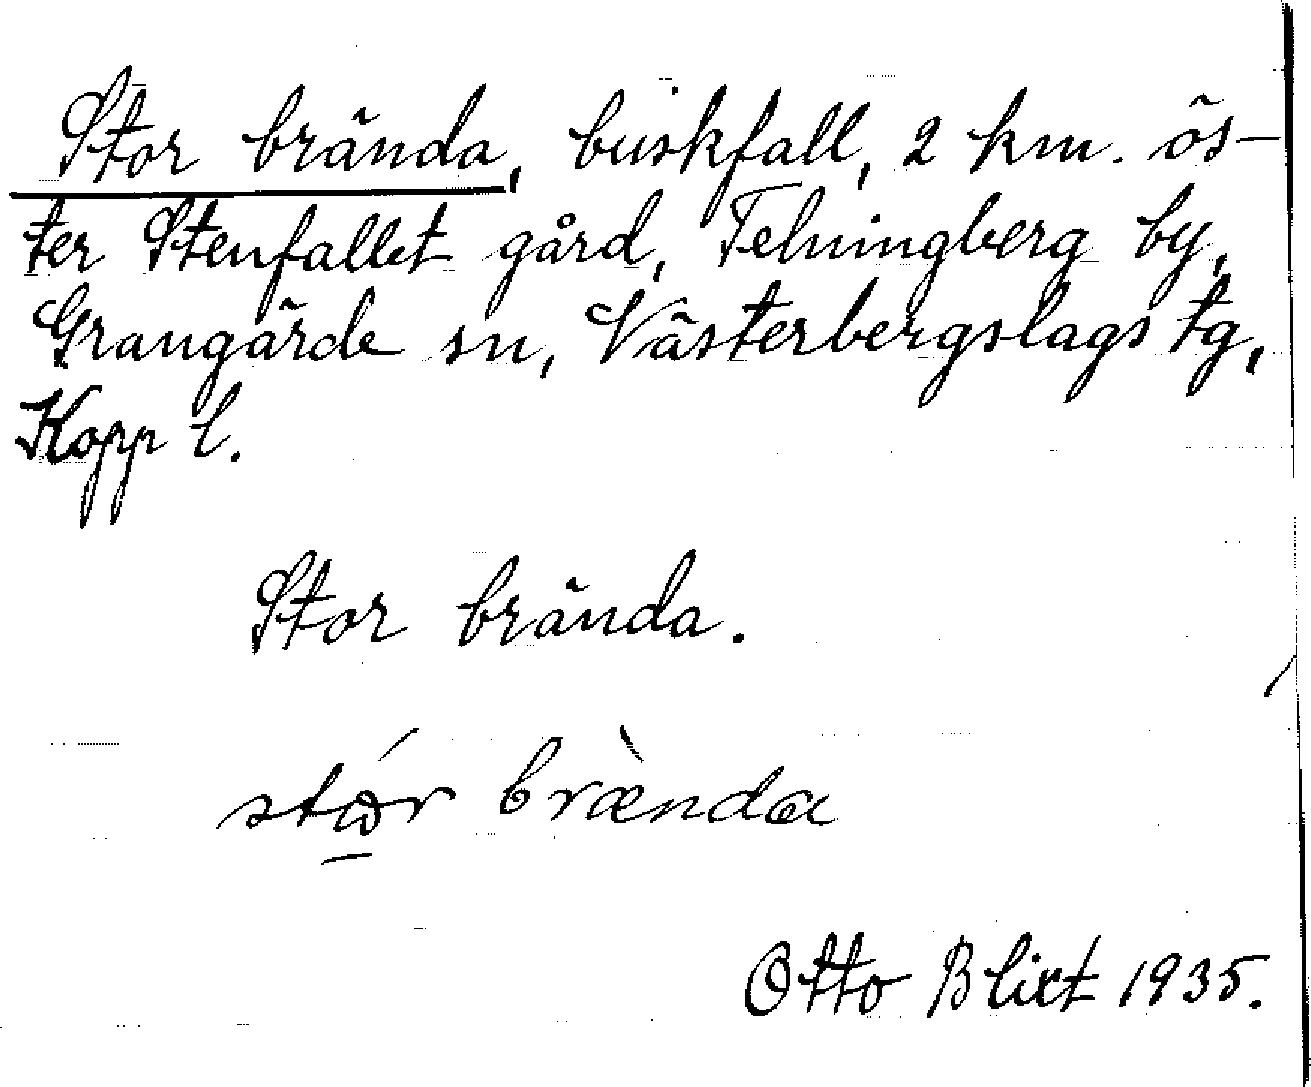 Stor brända, buskfall, 2 km. ös-
ter Stenfallet gård, Telningberg by,
Grangärde sn, Västerbergslags tg,
Kopp l.
Stor brända.
stωr brænda
Otto Blixt 1935.